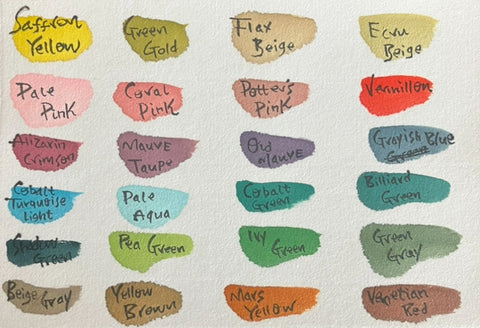 Saffron
Yellow
Green
Gold
Flax
Beige
Ecru
Beige
Pale
Pink
Coral
Pink
Potter's
Pink
Vermilion
Alizarin
Crimson
Mauve
Taupe
Old
Mauve
Grayish Blue
Cobalt
Turquoise
Light
Pale
Aqua
Cobalt
Green
Billiard
Green
Shadow
Green
Pea Green
Ivy
Green
Green
Gray
Beige Gray
Yellow
Brown
Mars
Yellow
Venetian
Red